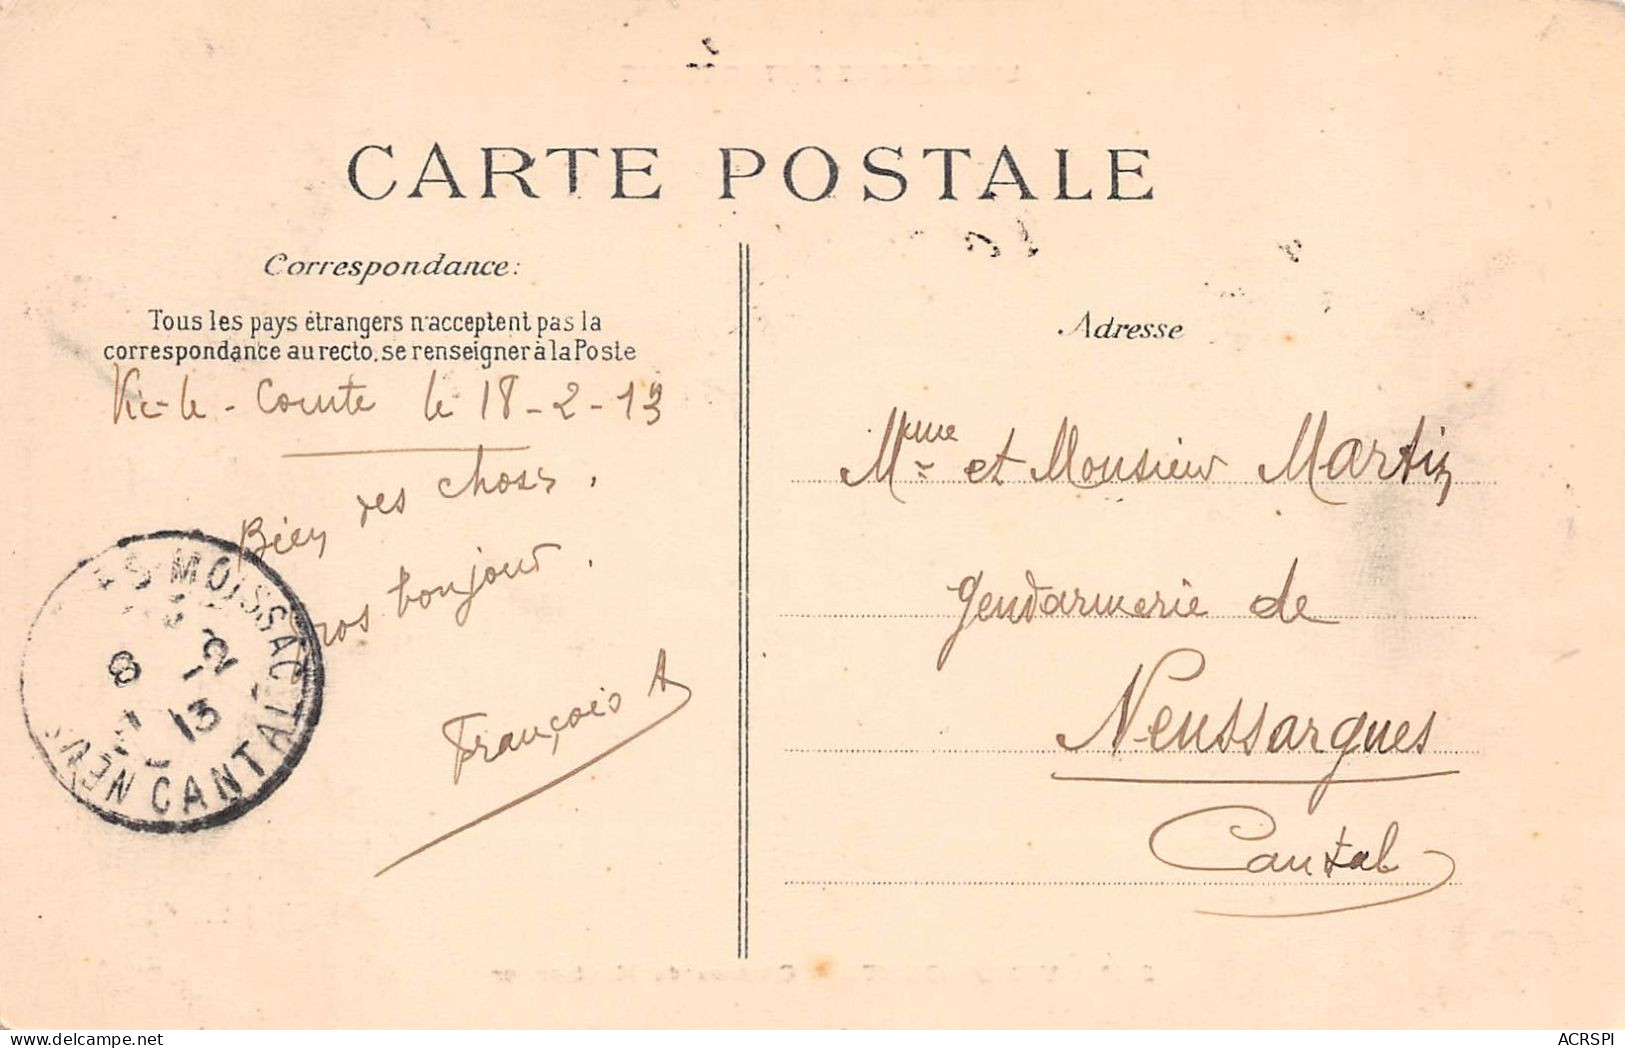 CARTE POSTALE
Correspondance:
Tous les pays étrangers n'acceptent pas la
correspondance au recto, se renseigner à la Poste
Vic-le-Comte le 18-2-13
Bien des choses.
gros bonjour.
François A
Adresse
Mme et Monsieur Martin
gendarmerie de
Neussargues
Cantal
MOISSAC
8 -2
13
CANTAL
ACRSPI